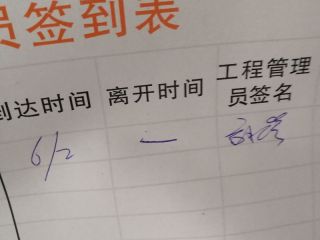 员签到表
到达时间 离开时间 工程管理
员签名
6/2 —